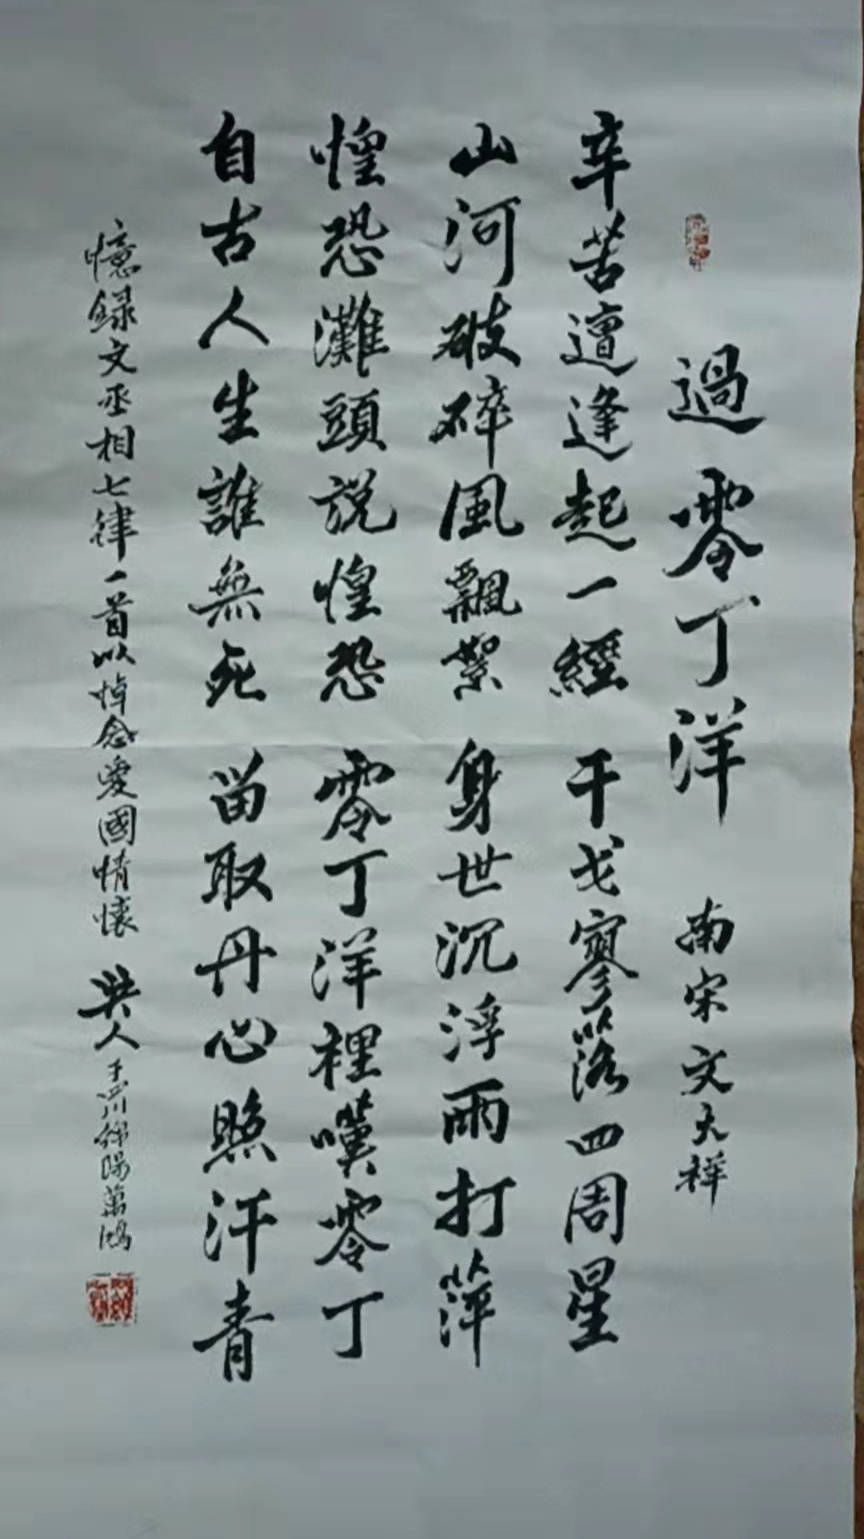 過零丁洋 南宋文天祥
辛苦遭逢起一經 干戈寥落四周星
山河破碎風飄絮 身世沉浮雨打萍
惶恐灘頭説惶恐 零丁洋裡嘆零丁
自古人生誰無死 留取丹心照汗青
憶録文丞相七律一首以悼念愛國情懷